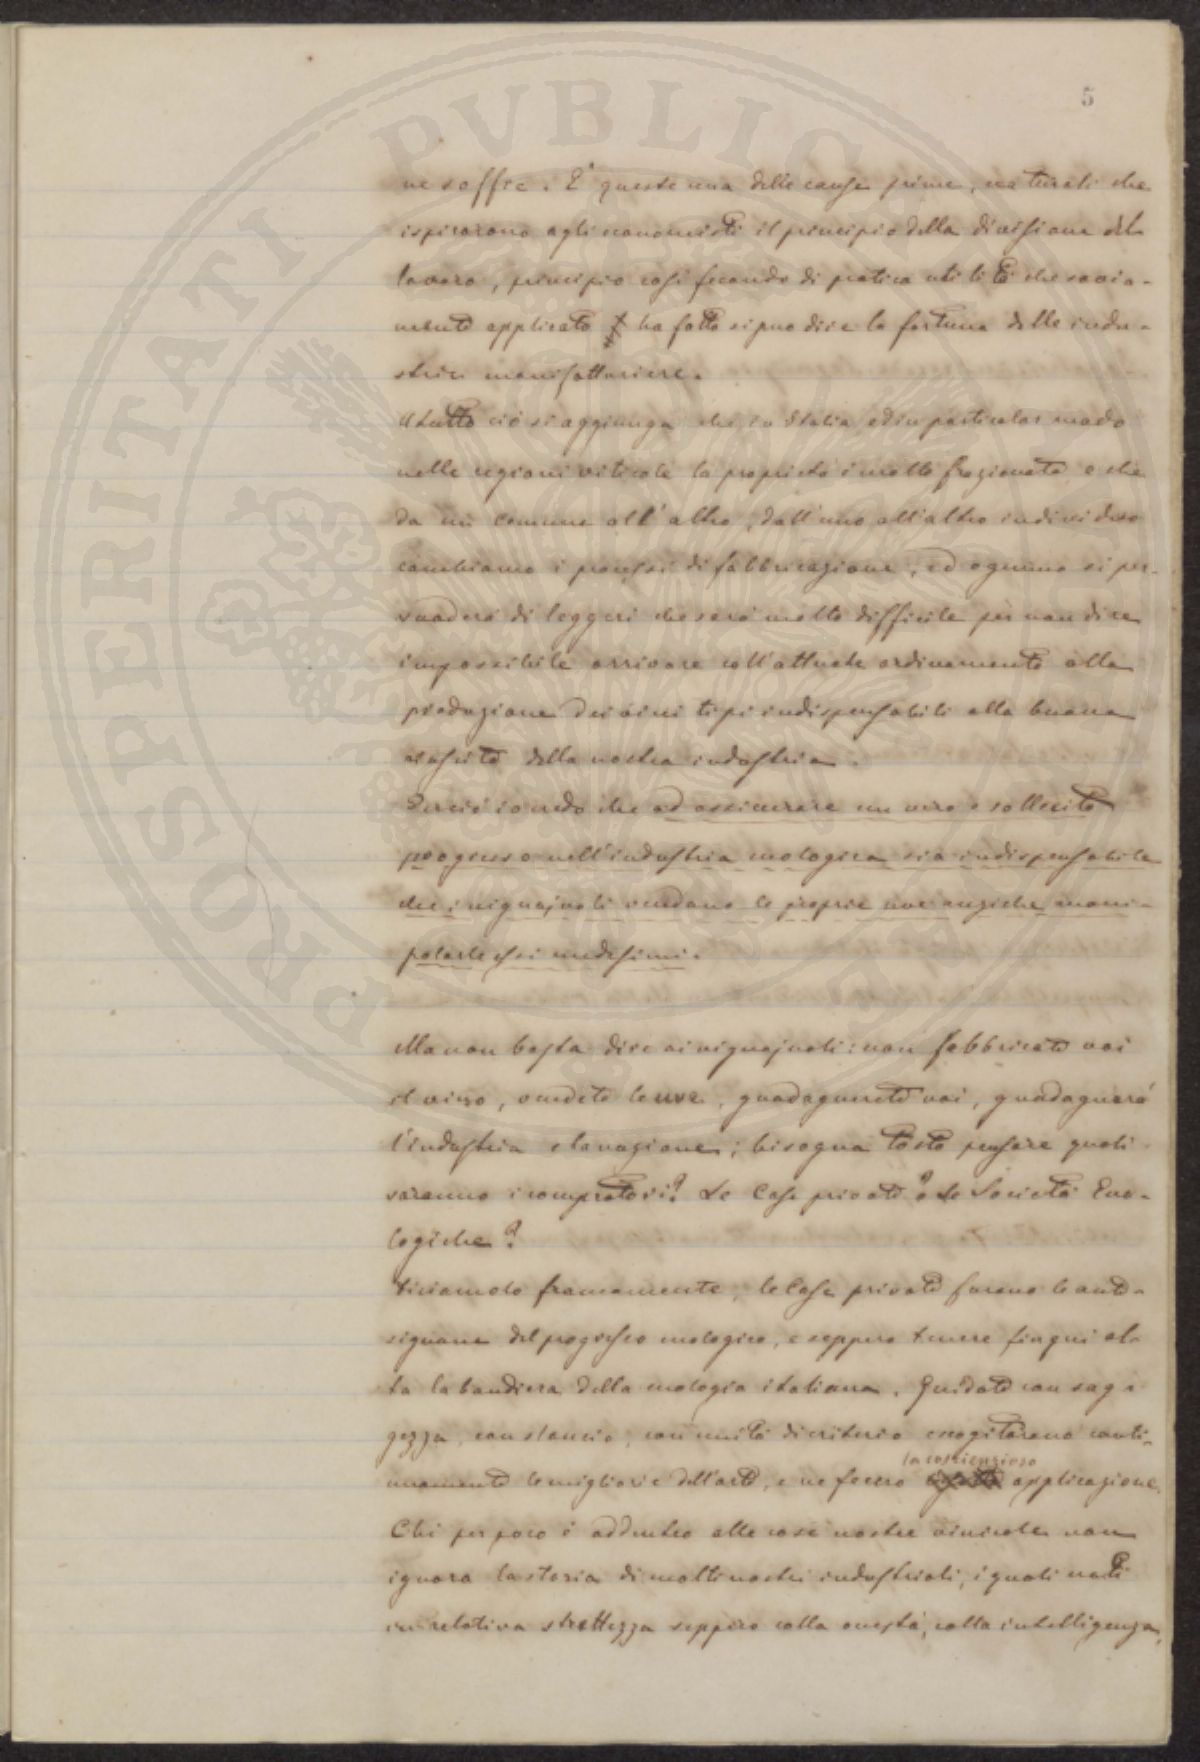 5
ne soffre. È questa una delle cause prime, naturali che
ispirarono agli economisti il principio della divisione del
lavoro, principio così fecondo di pratica utilità che savia-
mente applicato ha fatto si può dire la fortuna delle indu-
strie manifatturiere.
A tutto ciò si aggiunga che in Italia, ed in particolar modo
nelle regioni viticole la proprietà è molto frazionata e che
da un comune all'altro, dall'uno all'altro individuo
cambiano i processi di fabbricazione, ed ognuno si per-
suaderà di leggeri che sarà molto difficile per non dire
impossibile arrivare coll'attuale ordinamento alla
produzione dei vini tipi indispensabili alla buona
riuscita della nostra industria.
Perciò io credo che ad assicurare un vero e sollecito
progresso nell'industria enologica sia indispensabile
che i vignajuoli vendano le proprie uve anziche mani-
polarle essi medesimi.
Ma non basta dire ai vignajuoli: non fabbricate voi
il vino, vendete le uve, guadagnerete voi, guadagnerà
l'industria e la nazione; bisogna tosto pensare quali
saranno i compratori? Le Case private? o le Società Eno-
logiche?
Diciamolo francamente, le Case private furono le ante-
signane del progresso enologico, e seppero tenere fin qui al-
ta la bandiera della enologia italiana. Guidate con sag-
gezza, con slancio, con unità di criterio escogitarono conti-
nuamente le migliorie dell'arte, e ne fecero la coscienziosa applicazione.
Chi per poco è addentro alle cose nostre vinicole non
ignora la storia di molti nostri industriali, i quali nati
in relativa strettezza seppero colla onestà, colla intelligenza,
PROSPERITATI PVBLIC